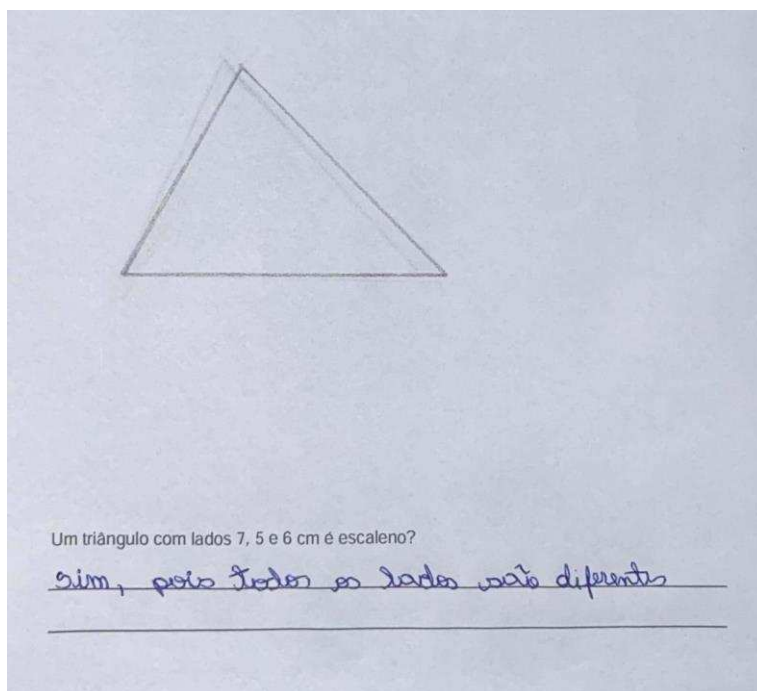 Um triângulo com lados 7, 5 e 6 cm é escaleno?
sim, pois todos os lados são diferentes